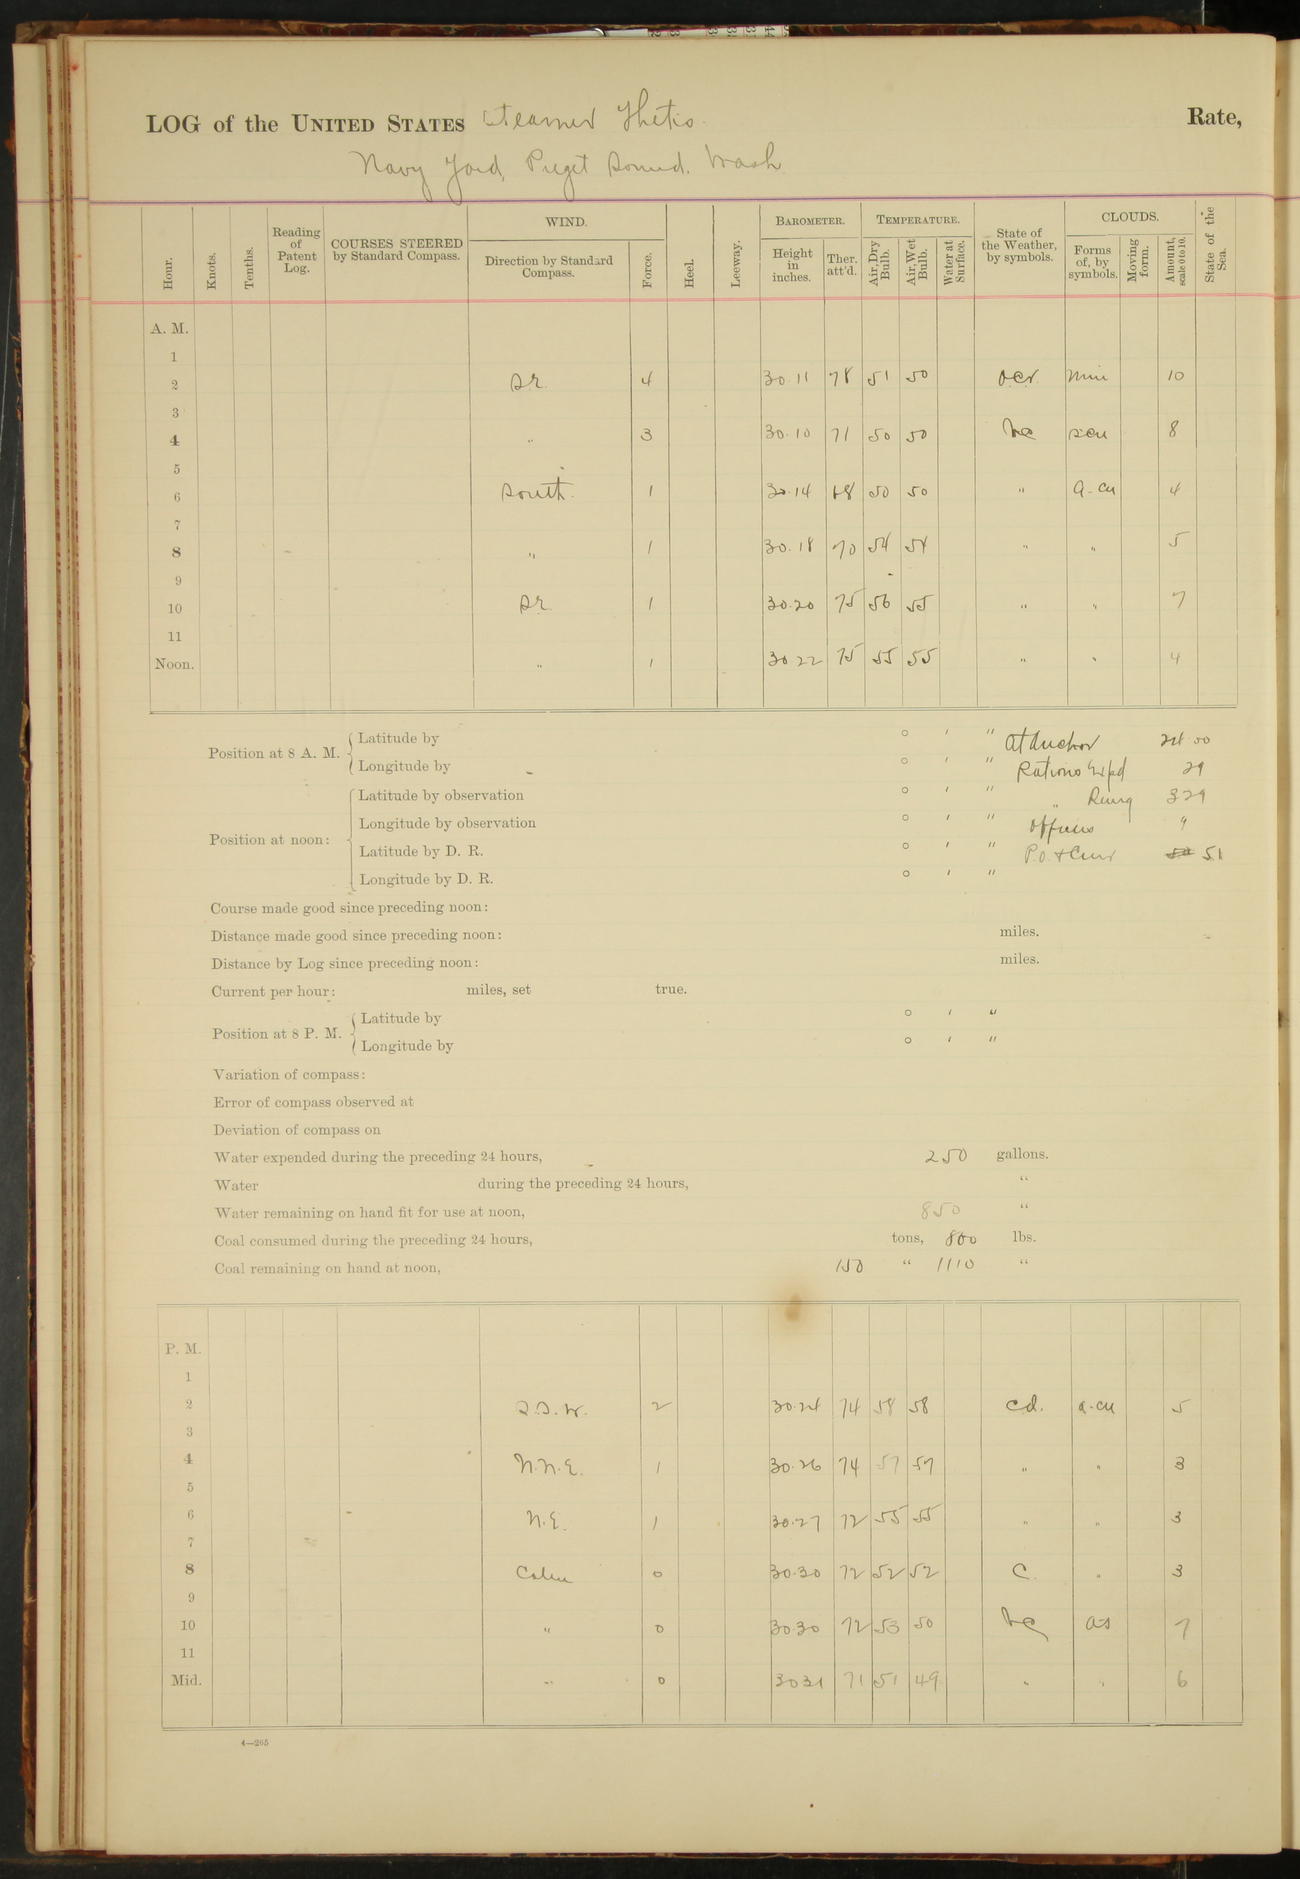 LOG of the UNITED STATES Steamer Thetis Rate,
Navy Yard, Puget Sound. Wash
Hour. Knots. Tenths. Reading of Patent Log. COURSES STEERED by Standard Compass. WIND. Direction by Standard Compass. Force. Heel. Leeway. BAROMETER. Height in inches. Ther. att'd. TEMPERATURE. Air, Dry Bulb. Air, Wet Bulb. Water at Surface. State of the Weather, by symbols. CLOUDS. Forms of, by symbols. Moving form. Amount, scale 0 to 10. State of the Sea.
A. M.
1
2 4 30.11 78 51 50 10
3
4 " 3 30.10 71 50 50 8
5
6 South. 1 30.14 68 50 50 " a-cu 4
7
8 " 1 30.18 70 54 54 " " 5
9
10 1 30.20 75 56 55 " " 7
11
Noon. " 1 30 22 75 55 55 " " 4
Position at 8 A. M. Latitude by ° ′ ″ At Anchor 24 00
Longitude by ° ′ ″ Rations Exp'd 29
Position at noon: Latitude by observation ° ′ ″ " 329
Longitude by observation ° ′ ″ Officers 9
Latitude by D. R. ° ′ ″ P.O. & Crew 51
Longitude by D. R. ° ′ ″
Course made good since preceding noon:
Distance made good since preceding noon: miles.
Distance by Log since preceding noon: miles.
Current per hour: miles, set true.
Position at 8 P. M. Latitude by ° ′ ″
Longitude by ° ′ ″
Variation of compass:
Error of compass observed at
Deviation of compass on
Water expended during the preceding 24 hours, 250 gallons.
Water during the preceding 24 hours, "
Water remaining on hand fit for use at noon, 850 "
Coal consumed during the preceding 24 hours, tons, 800 lbs.
Coal remaining on hand at noon, 150 " 1110 "
P. M.
1
2 S.S.W. 2 30.24 74 58 58 cd. a-cu 5
3
4 N.N.E. 1 30.26 74 57 57 " " 3
5
6 N.E. 1 30.27 72 55 55 " " 3
7
8 Calm 0 30.30 72 52 52 C. " 3
9
10 " 0 30.30 72 53 50 bc as 7
11
Mid. " 0 30 31 71 51 49 " " 6
4—265